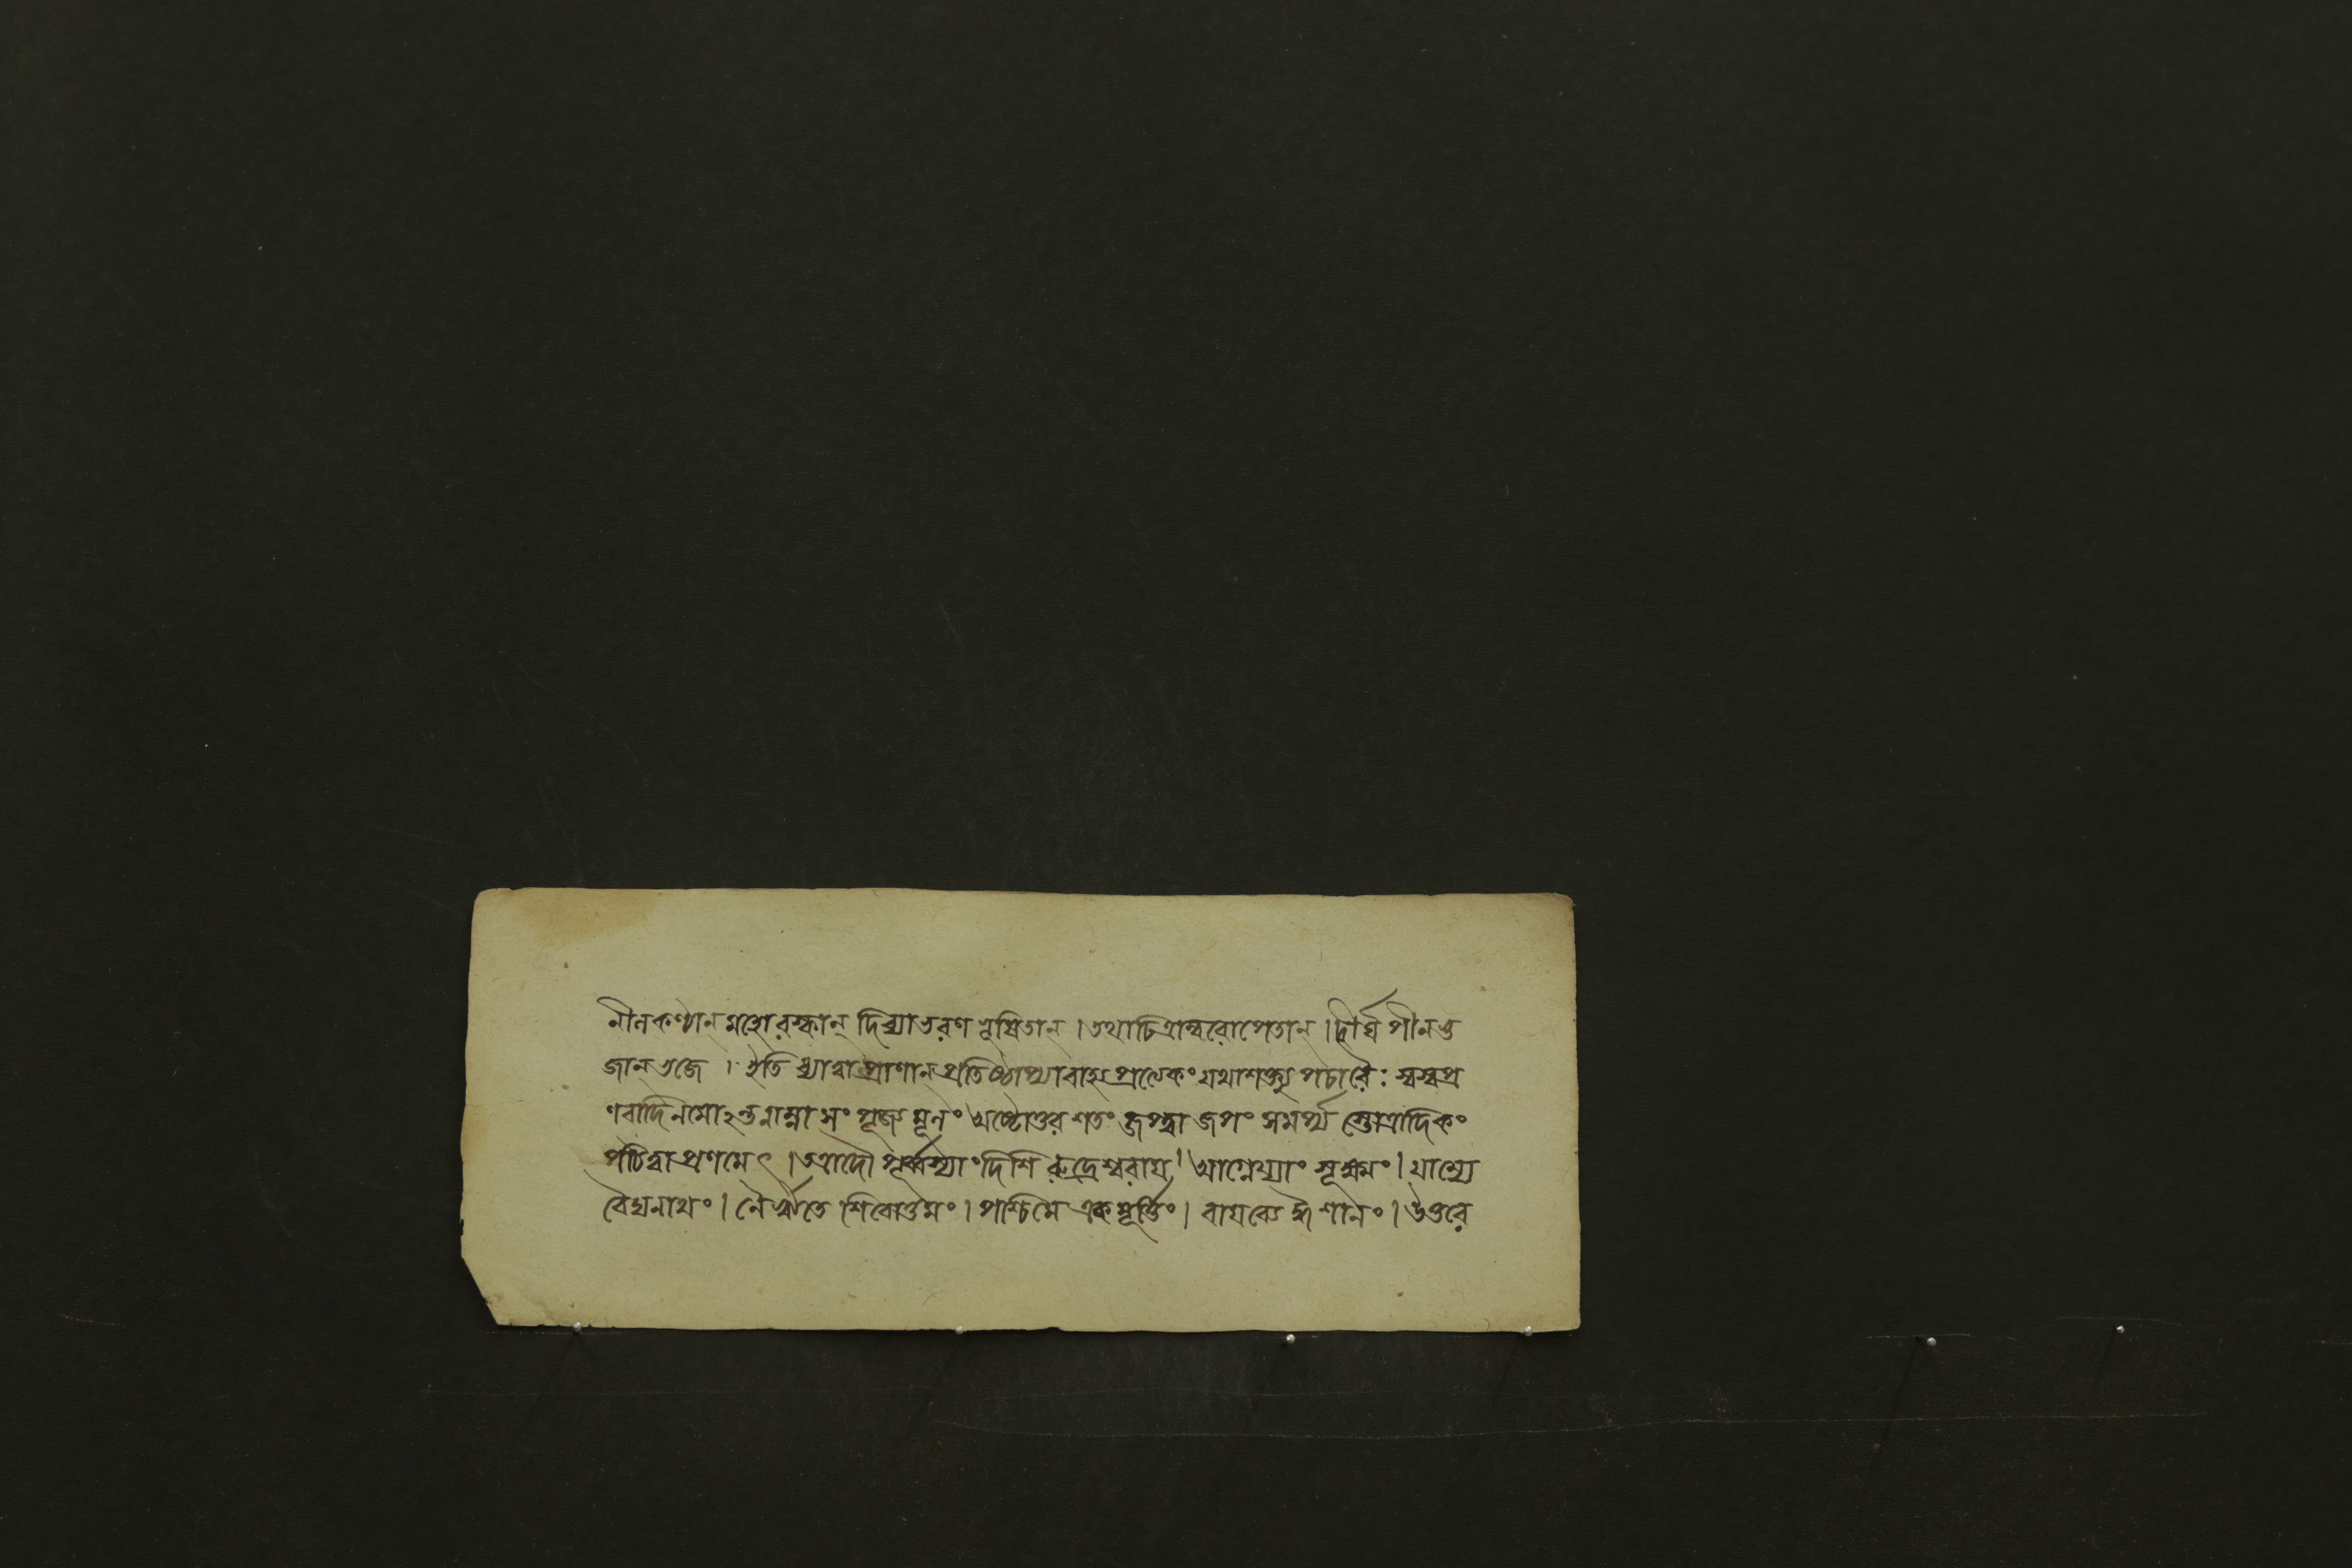 নীলকণ্ঠান্ মহোরস্কান্ দিব্যাভরণভূষিতান্ । তথাচিত্রাম্বরোপেতান্ । দীর্ঘপীনভু
জান্ ভজে । ইতি ধ্যাত্বা প্রাণান্ প্রতিষ্ঠাপ্যাবাহ্য প্রত্যেকং যথাশক্ত্যুপচারৈঃ স্বস্বপ্র
ণবাদিনমোঽন্তনাম্না সংপূজ্য মূলং অষ্টোত্তরশতং জপ্ত্বা জপং সমর্প্য স্তোত্রাদিকং
পঠিত্বা প্রণমেৎ । তত্রাদৌ পূর্ব্বস্যাং দিশি রুদ্রেশ্বরায় । আগ্নেয্যাং সূক্ষ্মং । যাম্যে
বৈদ্যনাথং । নৈরৃতে শিবোত্তমং । পশ্চিমে একমূর্ত্তিং । বায়ব্যে ঈশানং । উত্তরে